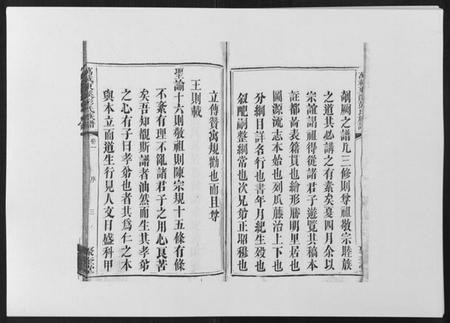 湖園之譜凡三修則尊祖敬宗睦族
之道其必講之有素矣夏四月余以
宗誼謁祖得從諸君子遊覽其稿本
註都啇表籍貫也繪形勝明里居也
圖源流志本始也列瓜藤治上下也
分綱目詳名行也書年月紀生殁也
叙配嗣整綱常也次兄弟正昭穆也
立傳贊寓規勸也而且尊
王則載
聖諭十六則敬祖則陳宗規十五條有條
不紊有理不亂諸君子之用心良苦
矣吾知觀斯譜者油然而生其孝弟
之心有子曰孝弟也者其為仁之本
與本立而道生行見人文日盛科甲
卷一 序 三